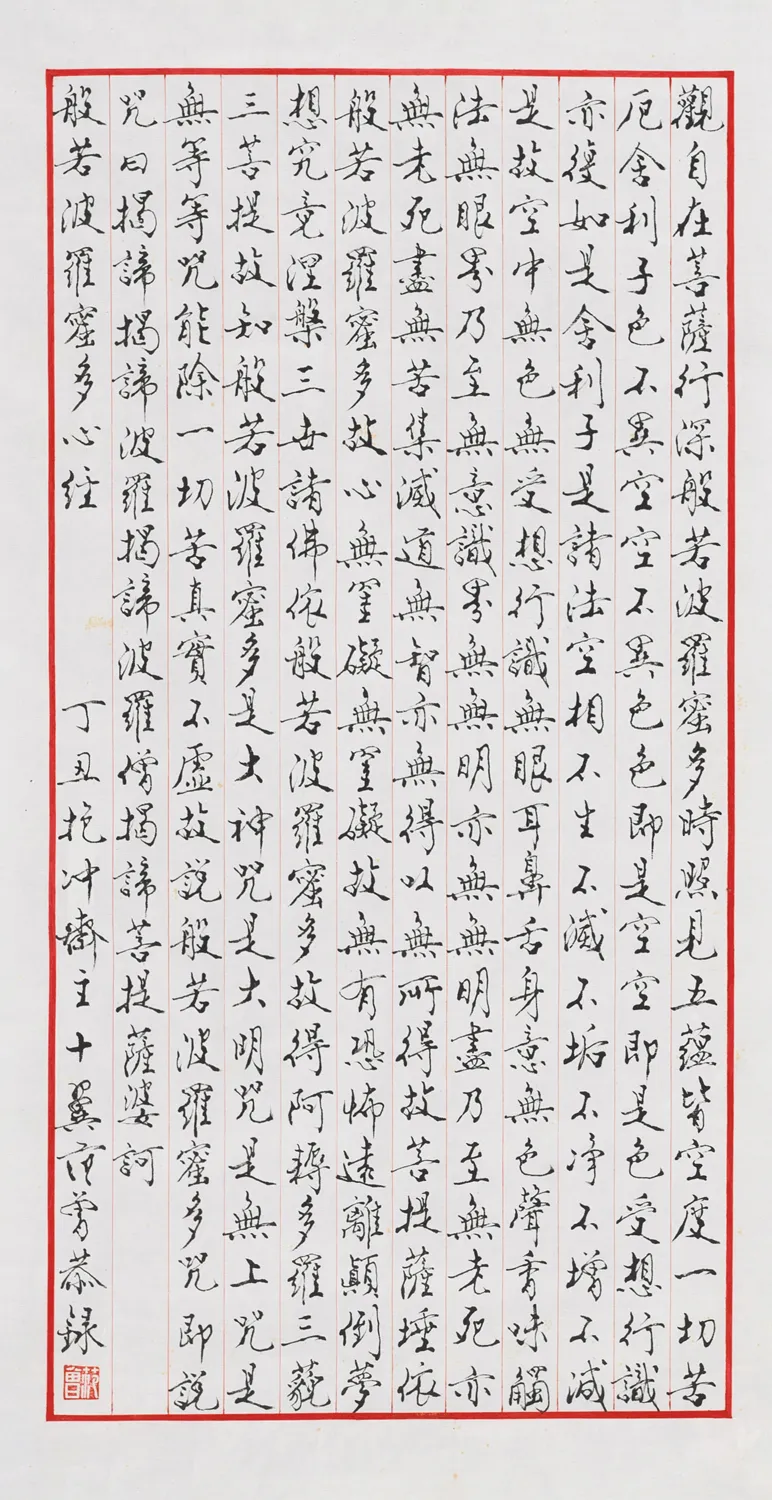 觀自在菩薩行深般若波羅蜜多時照見五蘊皆空度一切苦
厄舍利子色不異空空不異色色即是空空即是色受想行識
亦復如是舍利子是諸法空相不生不滅不垢不淨不增不減
是故空中無色無受想行識無眼耳鼻舌身意無色聲香味觸
法無眼界乃至無意識界無無明亦無無明盡乃至無老死亦
無老死盡無苦集滅道無智亦無得以無所得故菩提薩埵依
般若波羅蜜多故心無罣礙無罣礙故無有恐怖遠離顛倒夢
想究竟涅槃三世諸佛依般若波羅蜜多故得阿耨多羅三藐
三菩提故知般若波羅蜜多是大神咒是大明咒是無上咒是
無等等咒能除一切苦真實不虛故說般若波羅蜜多咒即說
咒曰揭諦揭諦波羅揭諦波羅僧揭諦菩提薩婆訶
般若波羅蜜多心經
丁丑抱冲齋主十翼范曾恭録
范曾